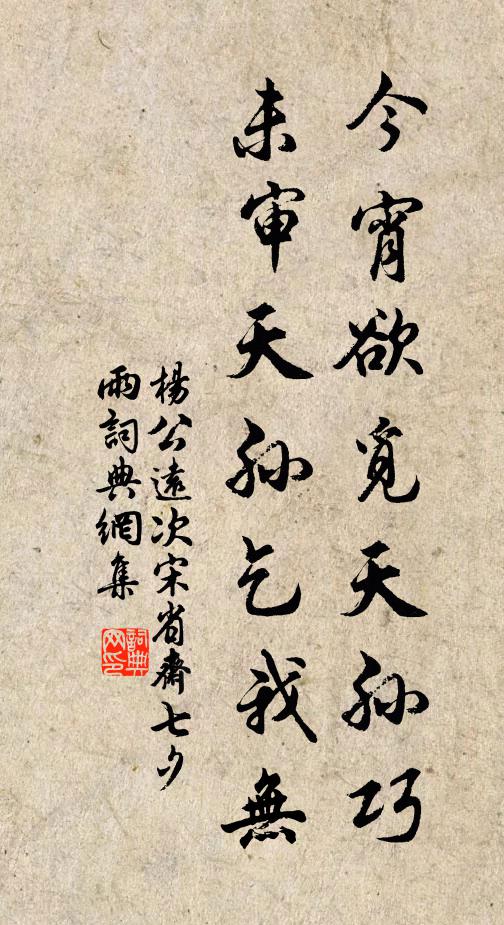 今宵欲覓天孫巧
未審天孫乞我無
楊公遠次宋省齋七夕
雨詞典網集
詞典网印